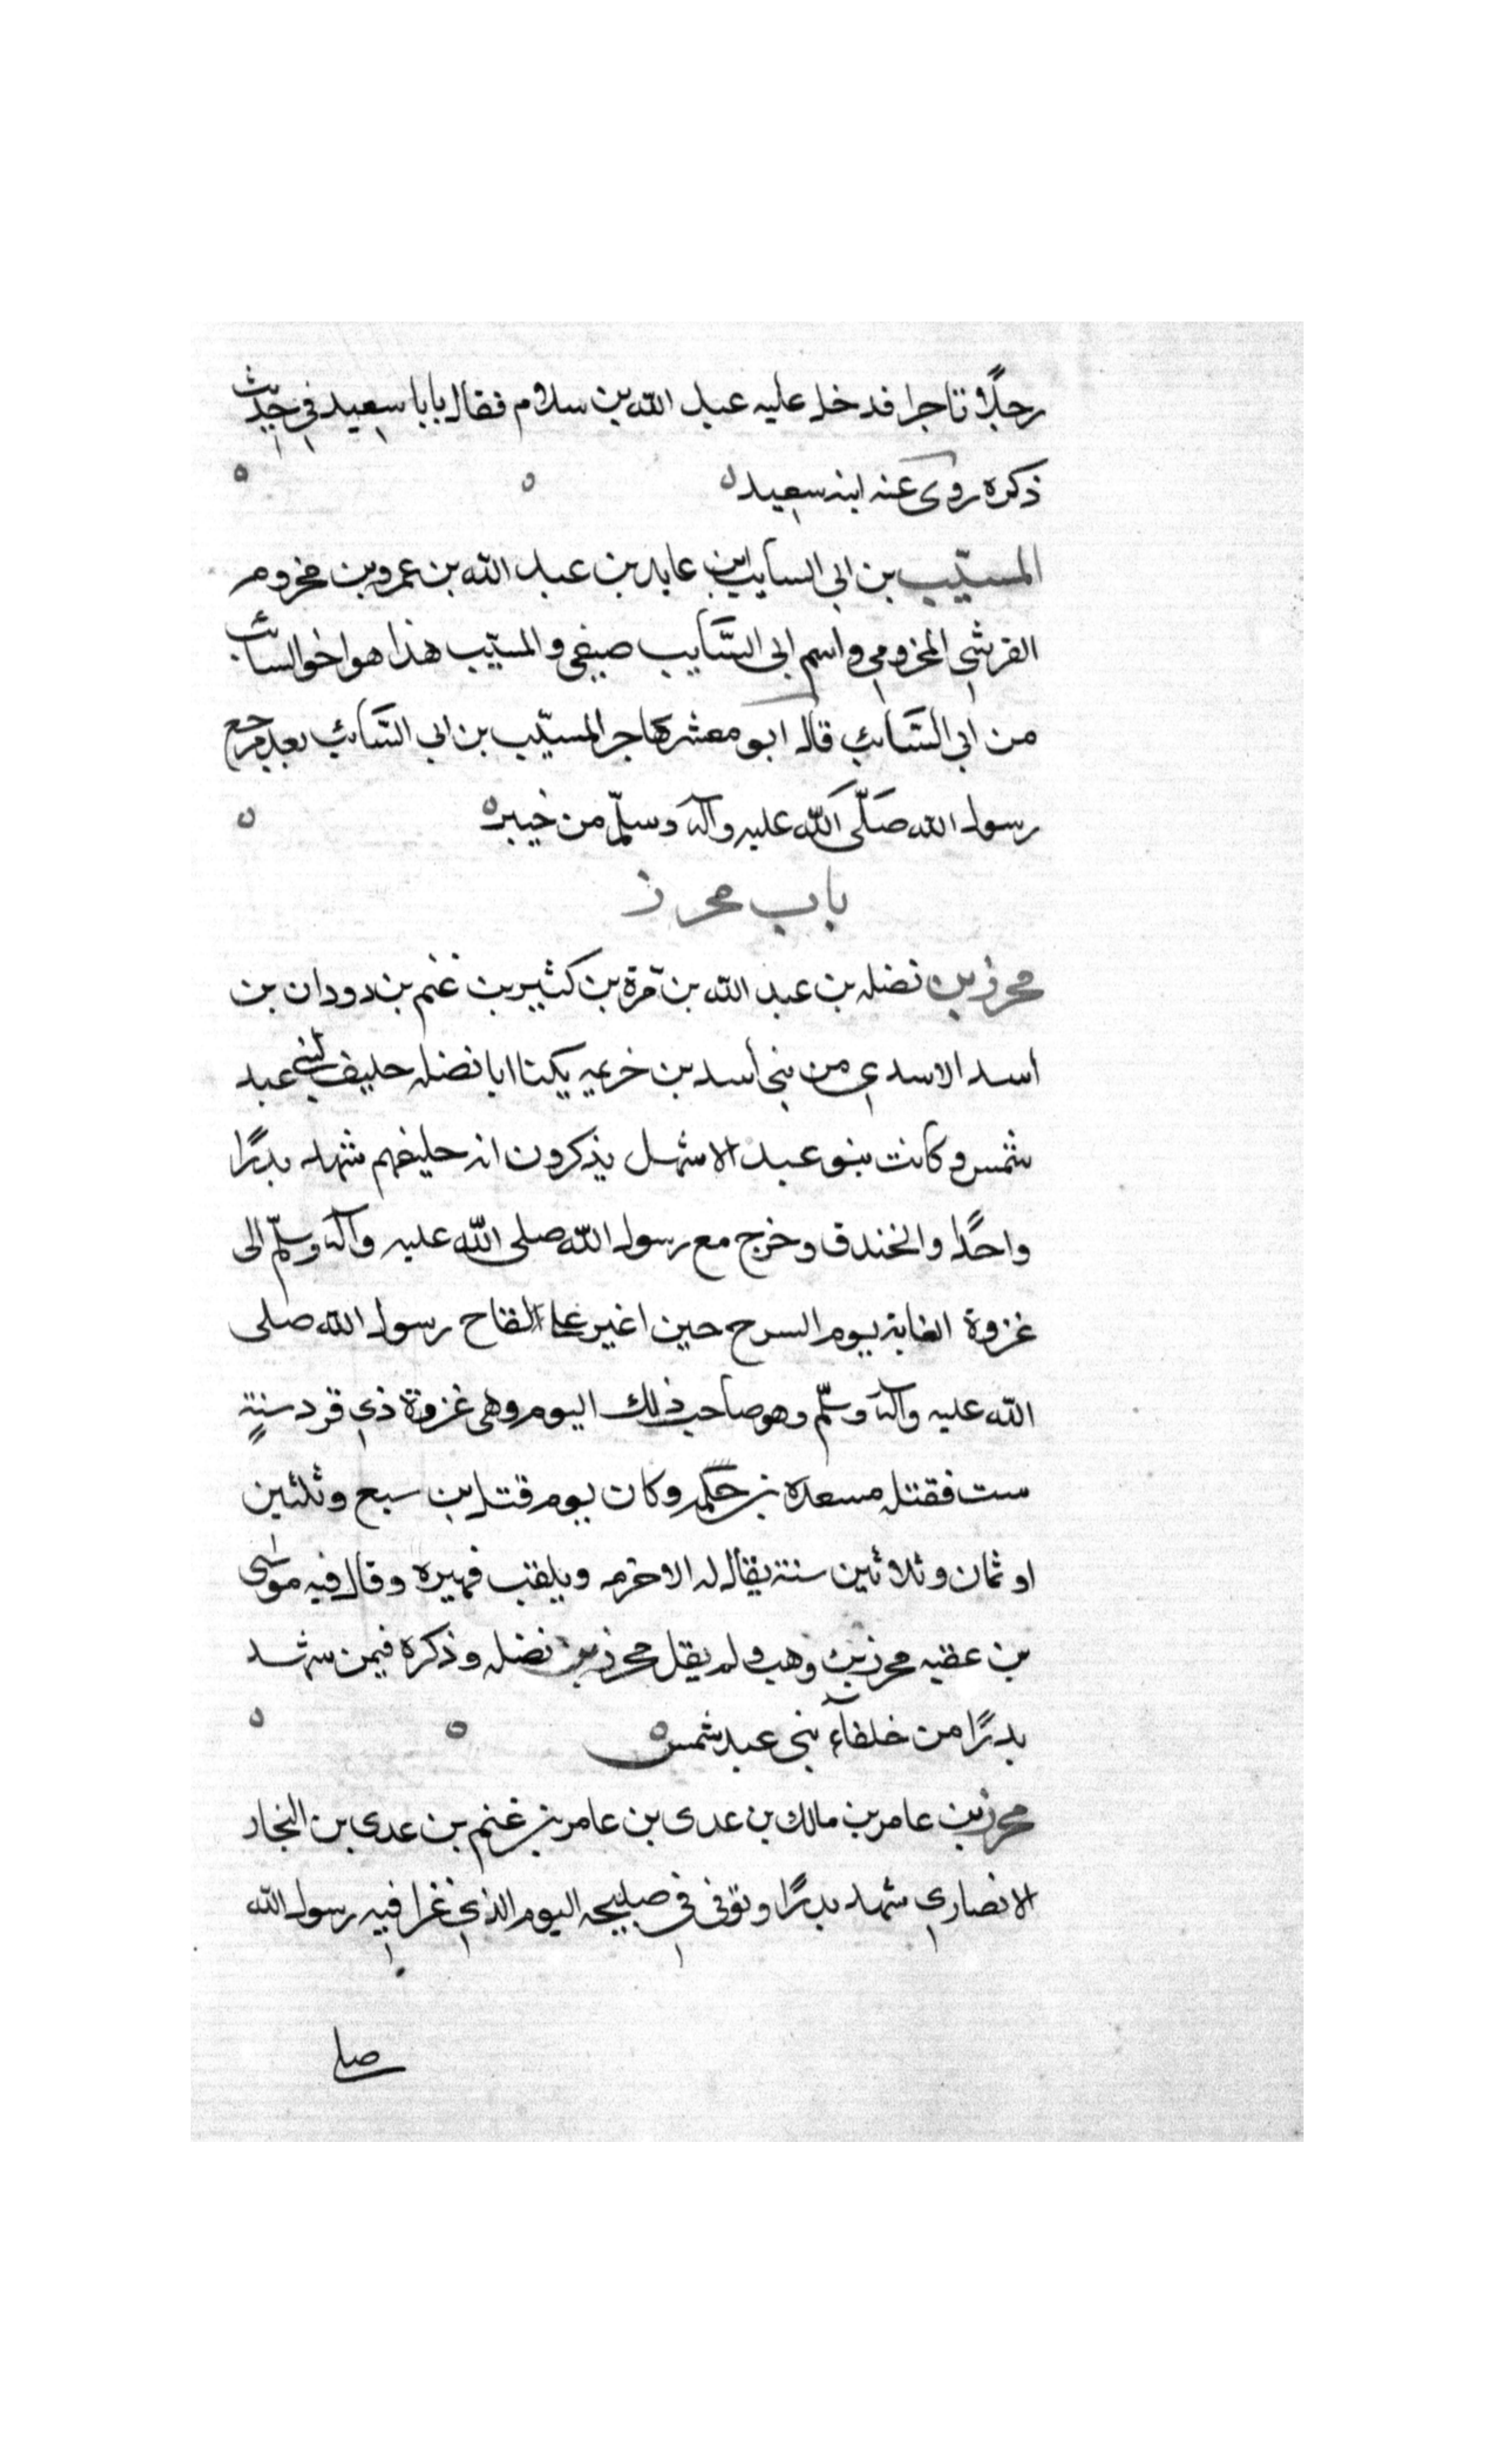 رجلًا تاجرا فدخل عليه عبد الله بن سلام فقال يابا سعيد في حديث
ذكره روى عنه ابنه سعيد ه
المسيّب بن ابي السايب بن عابد بن عبد الله بن عمرو بن مخزوم
القرشي المخزومي واسم ابي السَّايب صيفي والمسيّب هذا هو اخو السائب
من ابي السَّائب قال ابو معشر هاجر المسيّب بن ابي السَّائب بعد مرجع
رسول الله صَلَّى اَللّه عليه وآله وسلّم من خيبر ه
باب محرز
محرز بن نضله بن عبد الله بن مّرة بن كثير بن غنم بن دودان بن
اسد الاسدي من بني أسد بن خزيمه يكنا ابا نضله حليف لبني عبد
شمس وكانت بنو عبد الاشهل يذكرون انه حليفهم شهد بدرًا
واحدًا والخندق وخرج مع رسول الله صلى اللّه عليه وآله وسلّم الى
غزوة الغابة يوم السرح حين اغير على القاح رسول الله صلى
الله عليه وآله وسلّم وهو صاحب ذلك اليوم وهى غزوة ذي قرد سنةٍ
ست فقتله مسعدة بن حكمه وكان يوم قتل بن سبع وثلثين
او ثمان وثلاثين سنة يقال له الاخرم ويلقب فهيره وقال فيه موسى
بن عقبه محرز بن وهب ولم يقل محرز بن نضله وذكره فيمن شهد
بدرًا من خلفآء بني عبد شمس ه
محرز بن عامر بن مالك بن عدى بن عامر بن غنم بن عدي بن النجار
الانصاري شهد بدرًا وتوفى في صبيحه اليوم الذي غزا فيه رسول الله
صلى